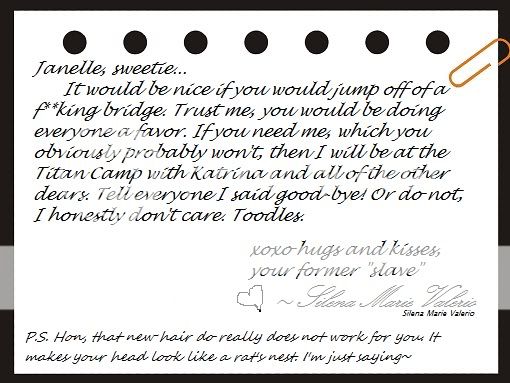 Janelle, sweetie...
It would be nice if you would jump off of a
f**king bridge. Trust me, you would be doing
everyone a favor. If you need me, which you
obviously probably won't, then I will be at the
Titan Camp with Katrina and all of the other
dears. Tell everyone I said good-bye! Or do not,
I honestly don't care. Toodles.
xoxo hugs and kisses,
your former "slave"
~ Silena Marie Valerio
Silena Marie Valerio
P.S. Hon, that new hair do really does not work for you. It
makes your head look like a rat's nest. I'm just saying~